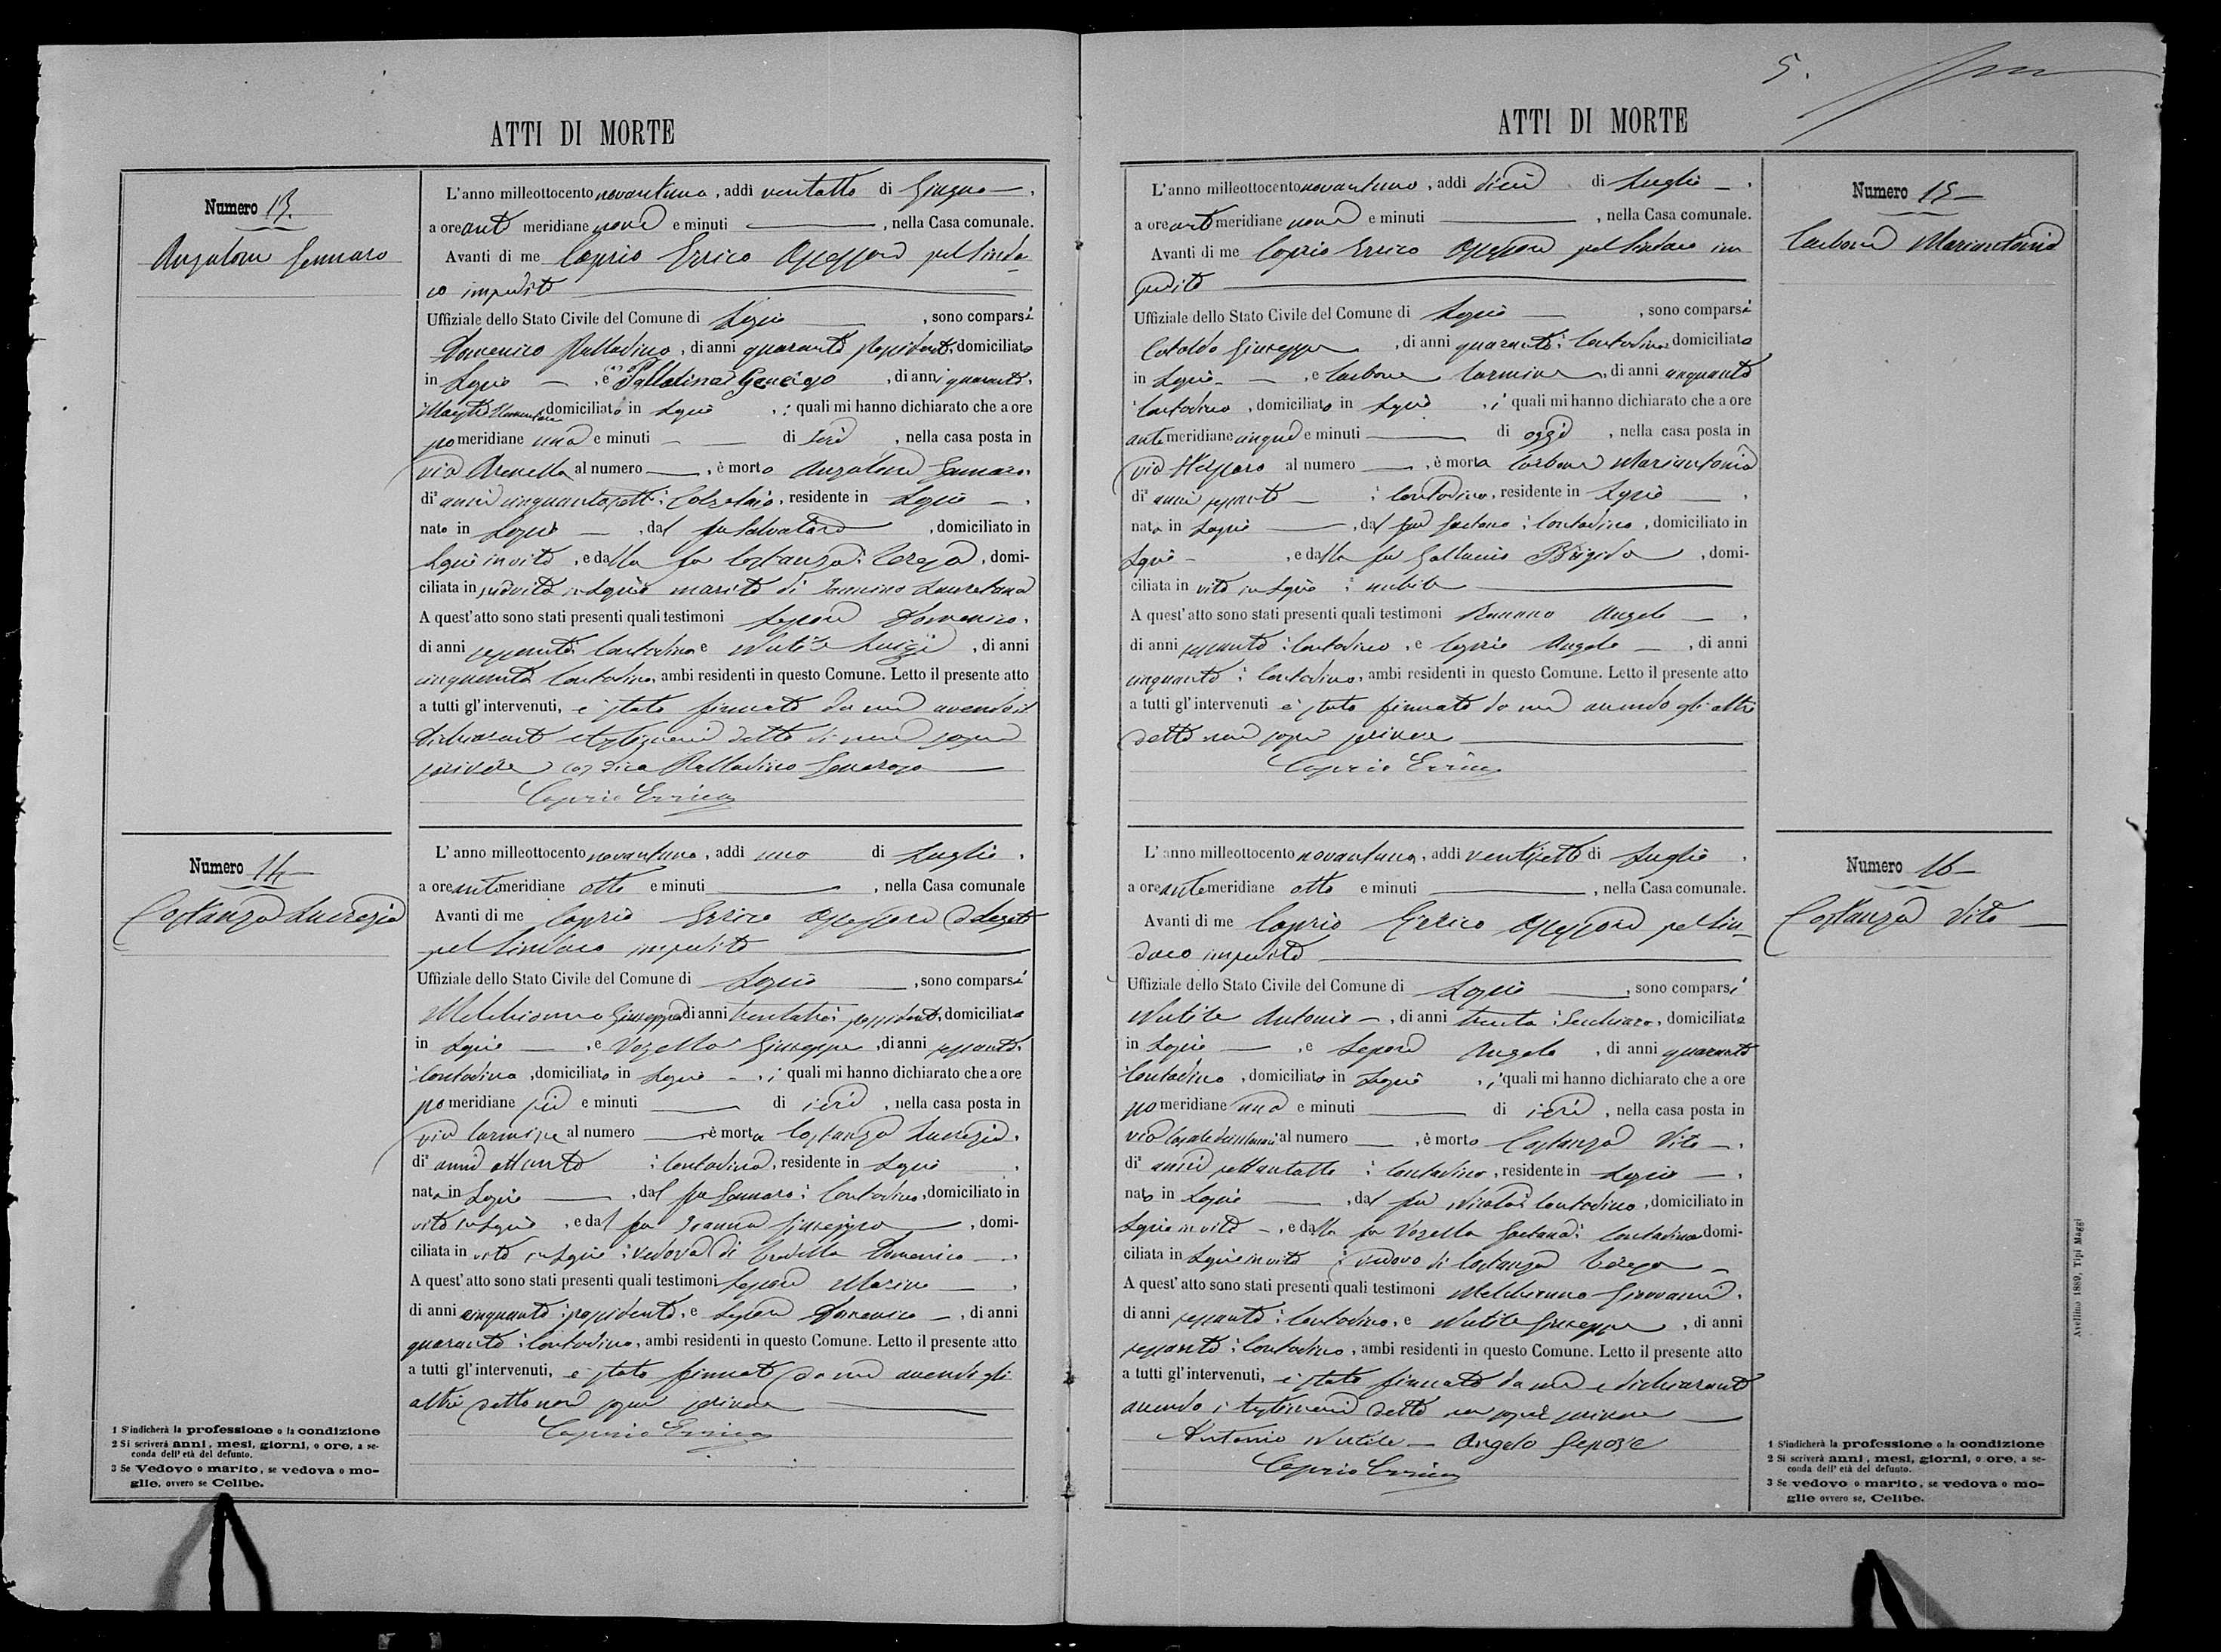 ATTI DI MORTE
Numero 13.
Angalone Gennaro
L'anno milleottocento novantuno, addì ventotto di Giugno
a ore ant meridiane nove e minuti , nella Casa comunale.
Avanti di me Caprio Errico Assessore pel Sinda
co impedito
Uffiziale dello Stato Civile del Comune di , sono comparsi
Domenico Palladino, di anni quaranta possidente, domiciliato
in , e , di anni quaranta,
domiciliato in , i quali mi hanno dichiarato che a ore
po meridiane una e minuti di ieri , nella casa posta in
via Arenella al numero , è morto Angalone Gennaro
di anni cinquantasette, Calzolaio, residente in
nato in , dal fu Salvatore , domiciliato in
in vita, e dalla fu Costanza Teresa, domi-
ciliata in vita in marito di Iannino
A quest'atto sono stati presenti quali testimoni Lepore Domenico,
di anni sessanta Contadino e Nutile Luigi , di anni
cinquanta Contadino, ambi residenti in questo Comune. Letto il presente atto
a tutti gl'intervenuti, è stato firmato da me avendo i
dichiaranti e testimoni detto di non sapere
scrivere dica Palladino
Caprio Errico
Numero 14
Costanza Lucrezia
L'anno milleottocento novantuno, addì uno di Luglio
a ore antemeridiane otto e minuti , nella Casa comunale
Avanti di me Caprio Errico Assessore delegato
pel Sindaco impedito
Uffiziale dello Stato Civile del Comune di , sono comparsi
Melchionna Giuseppe di anni trentatre, possidente, domiciliato
in , e Vozella Giuseppe, di anni sessanta,
Contadino, domiciliato in , i quali mi hanno dichiarato che a ore
po meridiane sei e minuti di ieri, nella casa posta in
via Carmine al numero , è morta Costanza Lucrezia,
di anni ottanta, Contadina, residente in
nata in , dal fu Gennaro, Contadino, domiciliato in
vita in , e dal fu Giuseppa , domi-
ciliata in vita in , vedova di Domenico
A quest'atto sono stati presenti quali testimoni Lepore Marino
di anni cinquanta, possidente, e Lepore Domenico, di anni
quaranta, Contadino, ambi residenti in questo Comune. Letto il presente atto
a tutti gl'intervenuti, è stato firmato da me avendo gli
altri detto non saper scrivere
Caprio Errico
1 S'indicherà la professione o la condizione
2 Si scriverà anni, mesi, giorni, o ore, a se-
conda dell'età del defunto.
3 Se Vedovo o marito, se vedova o mo-
glie, ovvero se Celibe.
5.
ATTI DI MORTE
L'anno milleottocento novantuno, addì dieci di Luglio
a ore ant meridiane nove e minuti , nella Casa comunale.
Avanti di me Caprio Errico Assessore pel Sindaco im
pedito
Uffiziale dello Stato Civile del Comune di , sono comparsi
Cataldo Giuseppe , di anni quaranta, Contadino domiciliato
in , e Carbone Carmine, di anni cinquanta
Contadino, domiciliato in , i quali mi hanno dichiarato che a ore
ante meridiane cinque e minuti di oggi , nella casa posta in
via al numero , è morta Carbone Mariantonia
di anni sessanta, Contadina, residente in
nata in , dal fu Gaetano, Contadino, domiciliato in
, e dalla fu Brigida , domi-
ciliata in vita in , nubile
A quest'atto sono stati presenti quali testimoni Romano Angelo
di anni sessanta, Contadino, e Caprio Angelo , di anni
cinquanta, Contadino, ambi residenti in questo Comune. Letto il presente atto
a tutti gl'intervenuti è stato firmato da me avendo gli altri
detto non saper scrivere
Caprio Errico
Numero 15
Carbone Mariantonia
L'anno milleottocento novantuno, addì ventisette di Luglio
a ore antemeridiane otto e minuti , nella Casa comunale.
Avanti di me Caprio Errico Assessore pel Sin
daco impedito
Uffiziale dello Stato Civile del Comune di , sono comparsi
Nutile Antonio, di anni trenta, , domiciliato
in , e Lepore Angelo , di anni quaranta
Contadino, domiciliato in , i quali mi hanno dichiarato che a ore
po meridiane una e minuti di ieri, nella casa posta in
via al numero , è morto Costanza Vito
di anni settantotto, Contadino, residente in
nato in , dal fu Nicola, Contadino, domiciliato in
in vita, e dalla fu Vozella Gaetana, Contadina domi-
ciliata in in vita, vedovo di Costanza Teresa
A quest'atto sono stati presenti quali testimoni Melchionna Giovanni,
di anni sessanta, Contadino, e Nutile Giuseppe , di anni
sessanta, Contadino, ambi residenti in questo Comune. Letto il presente atto
a tutti gl'intervenuti, è stato firmato da me e dichiaranti
avendo i testimoni detto non saper scrivere
Antonio Nutile Angelo Lepore
Caprio Errico
Numero 16
Costanza Vito
1 S'indicherà la professione o la condizione
2 Si scriverà anni, mesi, giorni, o ore, a se-
conda dell'età del defunto.
3 Se vedovo o marito, se vedova o mo-
glie ovvero se, Celibe.
Avellino 1889, Tipi Maggi